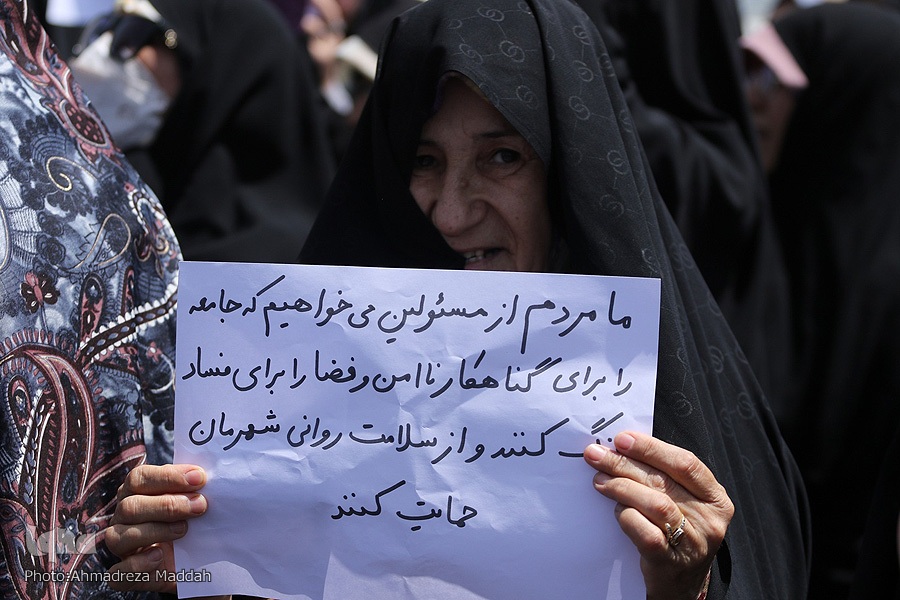 ما مردم از مسئولین می‌خواهیم که جامعه
را برای گناهکار ناامن و فضا را برای فساد
کنند و از سلامت روانی شهرمان
حمایت کنند
Photo:Ahmadreza Maddah